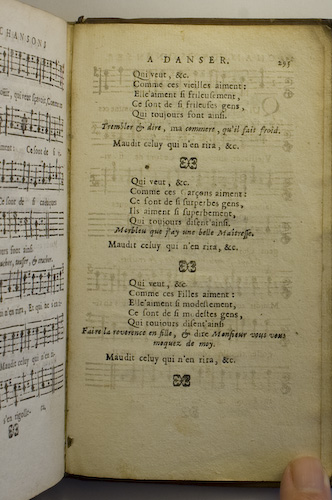 CHANSONS
qui veut sçavoir Comme ces
Ce sont de si
sont ainsi.
Maudit celuy qui n'en
s'en rigolle
A DANSER. 295
Qui veut, &c.
Comme ces vieilles aiment :
Elle aiment si frileusement,
Ce sont de si frileuses gens,
Qui toujours font ainsi.
Trembler & dire, ma commere, qu'il fait froid.
Maudit celuy qui n'en rira, &c.
Qui veut, &c.
Comme ces Garçons aiment :
Ce sont de si surperbes gens,
Ils aiment si superbement,
Qui toujours disent ainsi.
Marbleu que j'ay une belle Maîtresse.
Maudit celuy qui n'en rira, &c.
Qui veut, &c.
Comme ces Filles aiment :
Elle aiment si modestement,
Ce sont de si modestes gens,
Qui toujours disent ainsi
Faire la reverence en fille, & Monsieur vous vous
moquez de moy.
Maudit celuy qui n'en rira, &c.